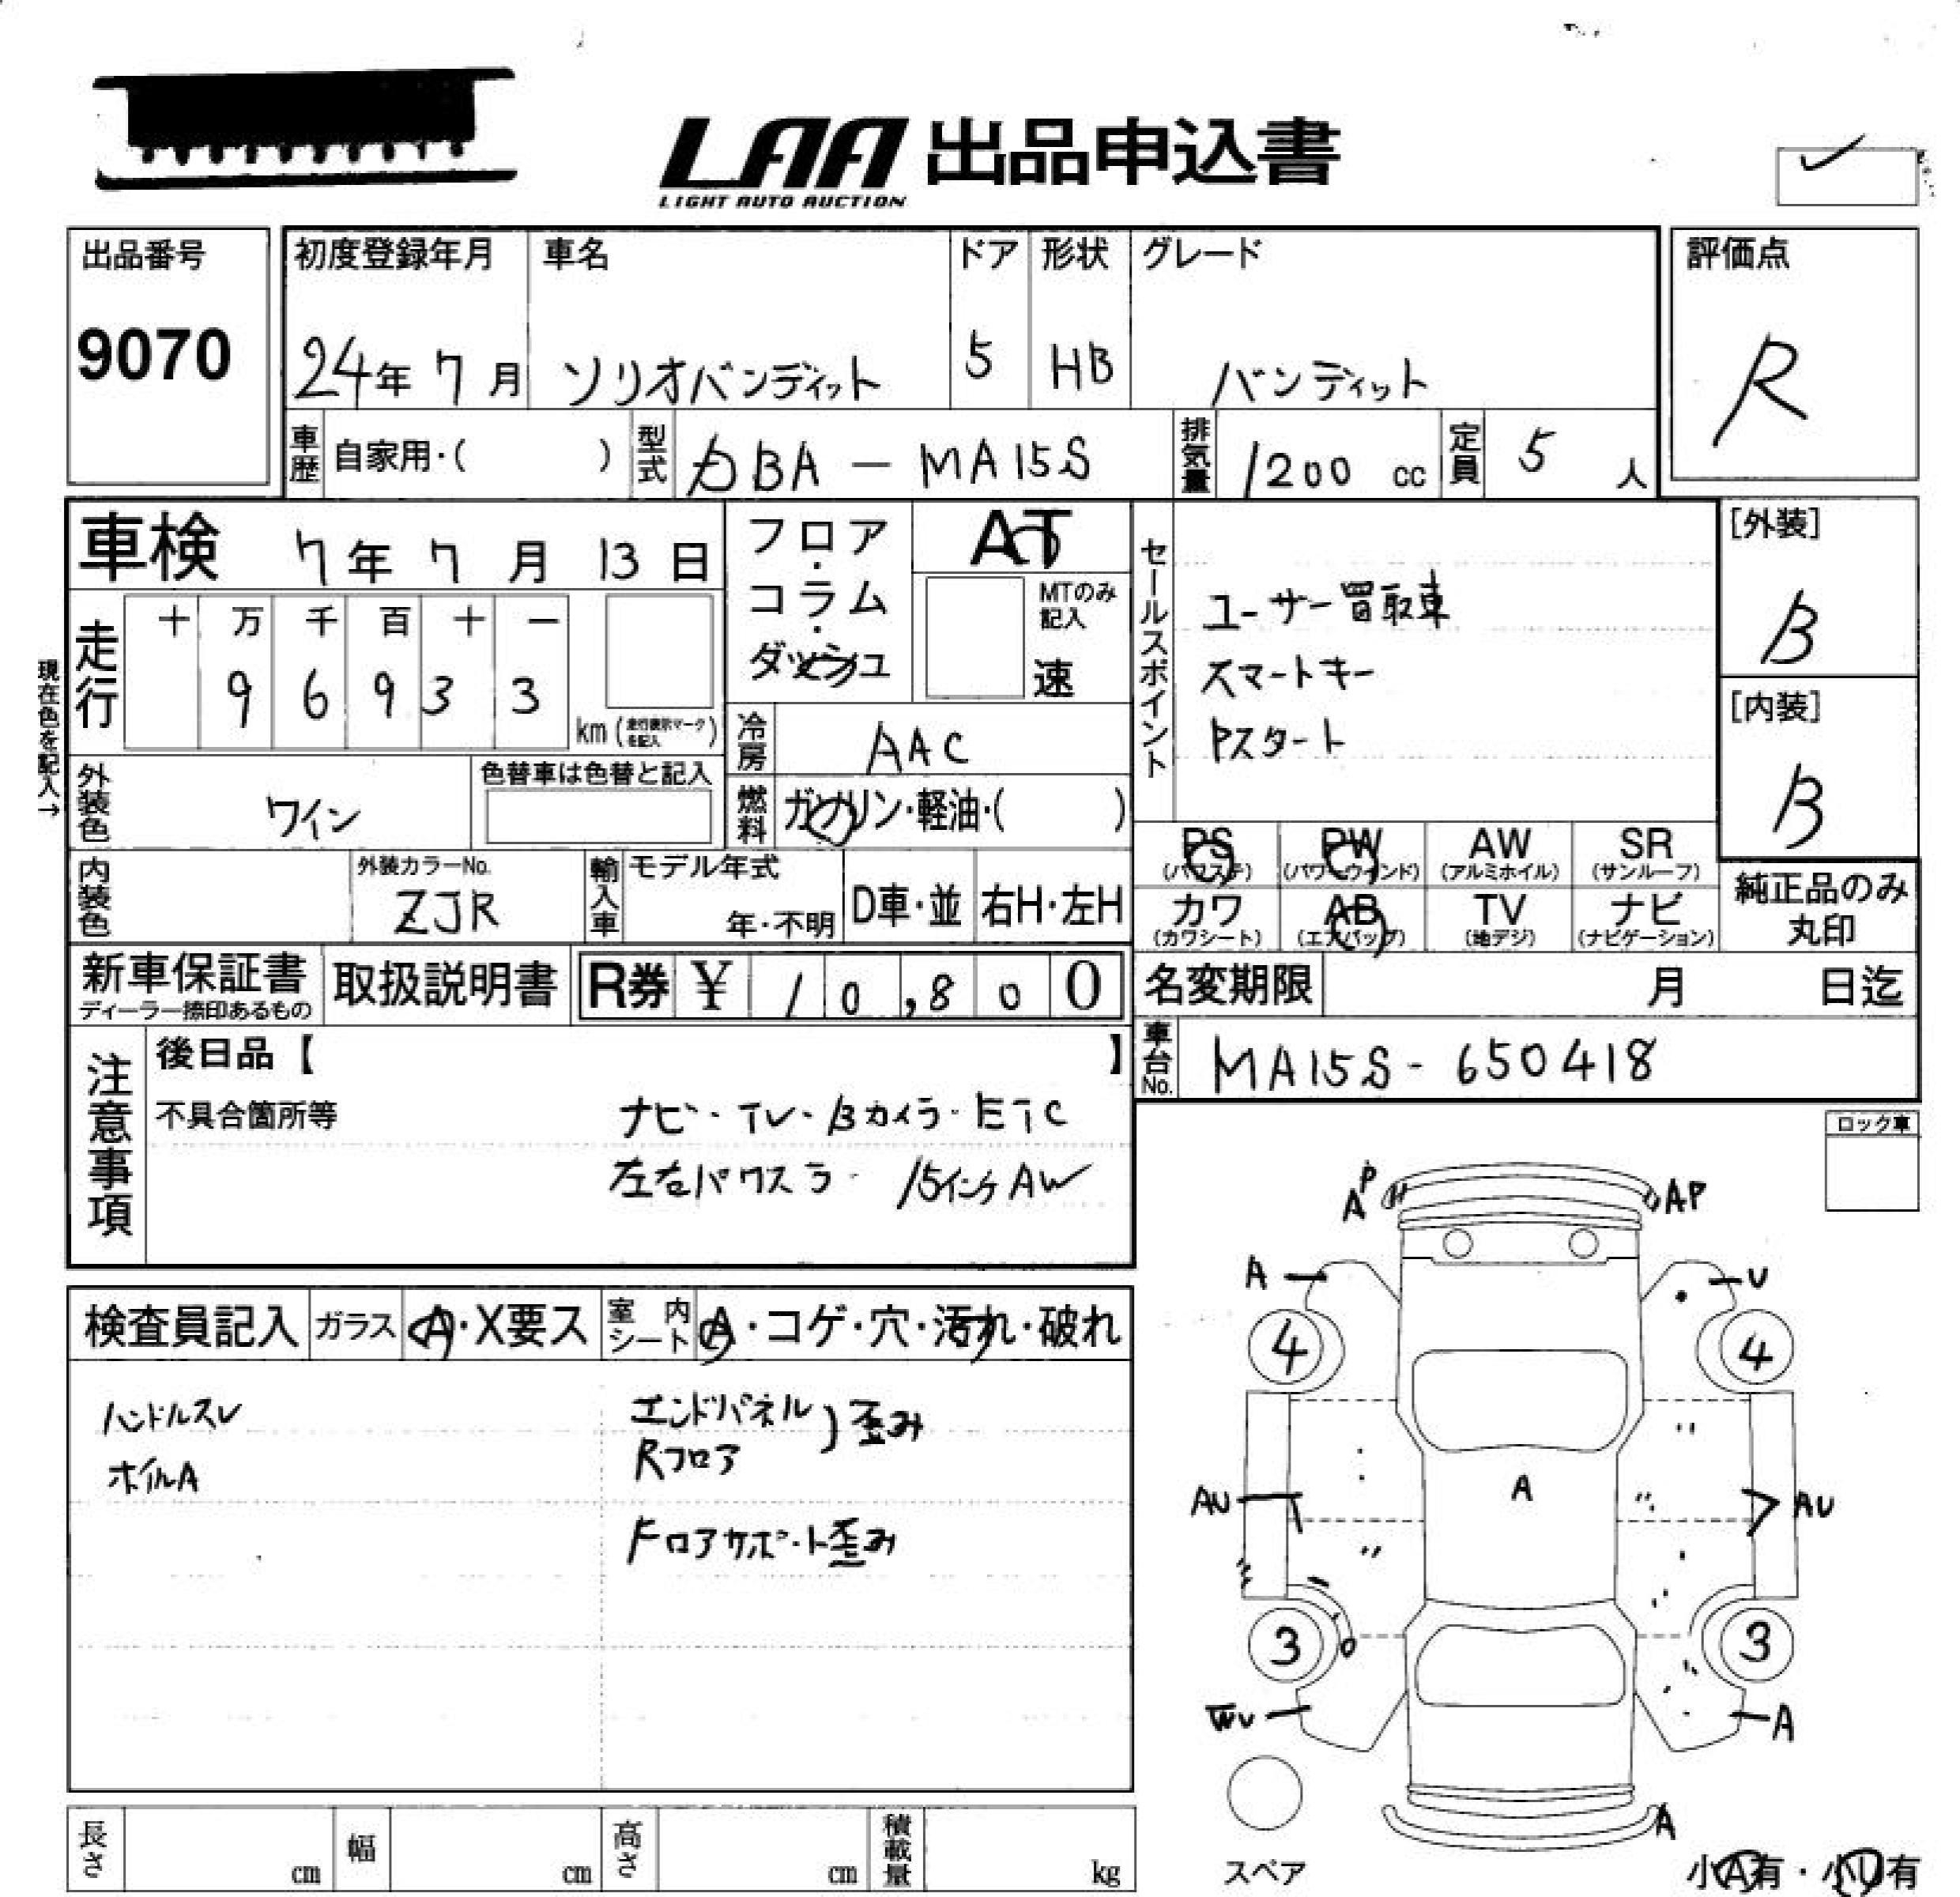 LAA 出品申込書
LIGHT AUTO AUCTION
出品番号
9070
初度登録年月
24年 7月
車名
ソリオバンディット
ドア
5
形状
HB
グレード
バンディット
評価点
R
車歴 自家用・( )
型式 DBA - MA15S
排気量 1200 cc
定員 5 人
車検 7年 7月 13日
フロア・コラム・ダッシュ
AT
MTのみ記入
速
セールスポイント
ユーザー買取車
スマートキー
Pスタート
[外装]
B
[内装]
B
現在色を記入→
走行
十 万 千 百 十 一
9 6 9 3 3
km (走行表示マークを記入)
冷房 AAC
燃料 ガソリン・軽油・( )
外装色 ワイン
色替車は色替と記入
内装色
外装カラーNo.
ZJR
輸入車
モデル年式
年・不明
D車・並
右H・左H
PS (パワステ)
PW (パワーウインド)
AW (アルミホイル)
SR (サンルーフ)
カワ (カワシート)
AB (エアバッグ)
TV (地デジ)
ナビ (ナビゲーション)
純正品のみ
丸印
新車保証書
ディーラー捺印あるもの
取扱説明書
R券 ¥ 10,800
名変期限 月 日迄
車台No. MA15S - 650418
注意事項
後日品【 】
不具合箇所等
ナビ・TV・Bカメラ・ETC
左右パワスラ 15インチAW
ロック車
検査員記入
ガラス A・X要ス
室内シート A・コゲ・穴・汚れ・破れ
ハンドルスレ
ホイルA
エンドパネル
Rフロア
) 歪み
Fロアサポート歪み
P
A
AP
A
U
4
4
AU
A
AU
3
3
WU
A
A
スペア
小A有・小U有
長さ cm
幅 cm
高さ cm
積載量 kg